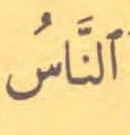 ٱلنَّاسُ